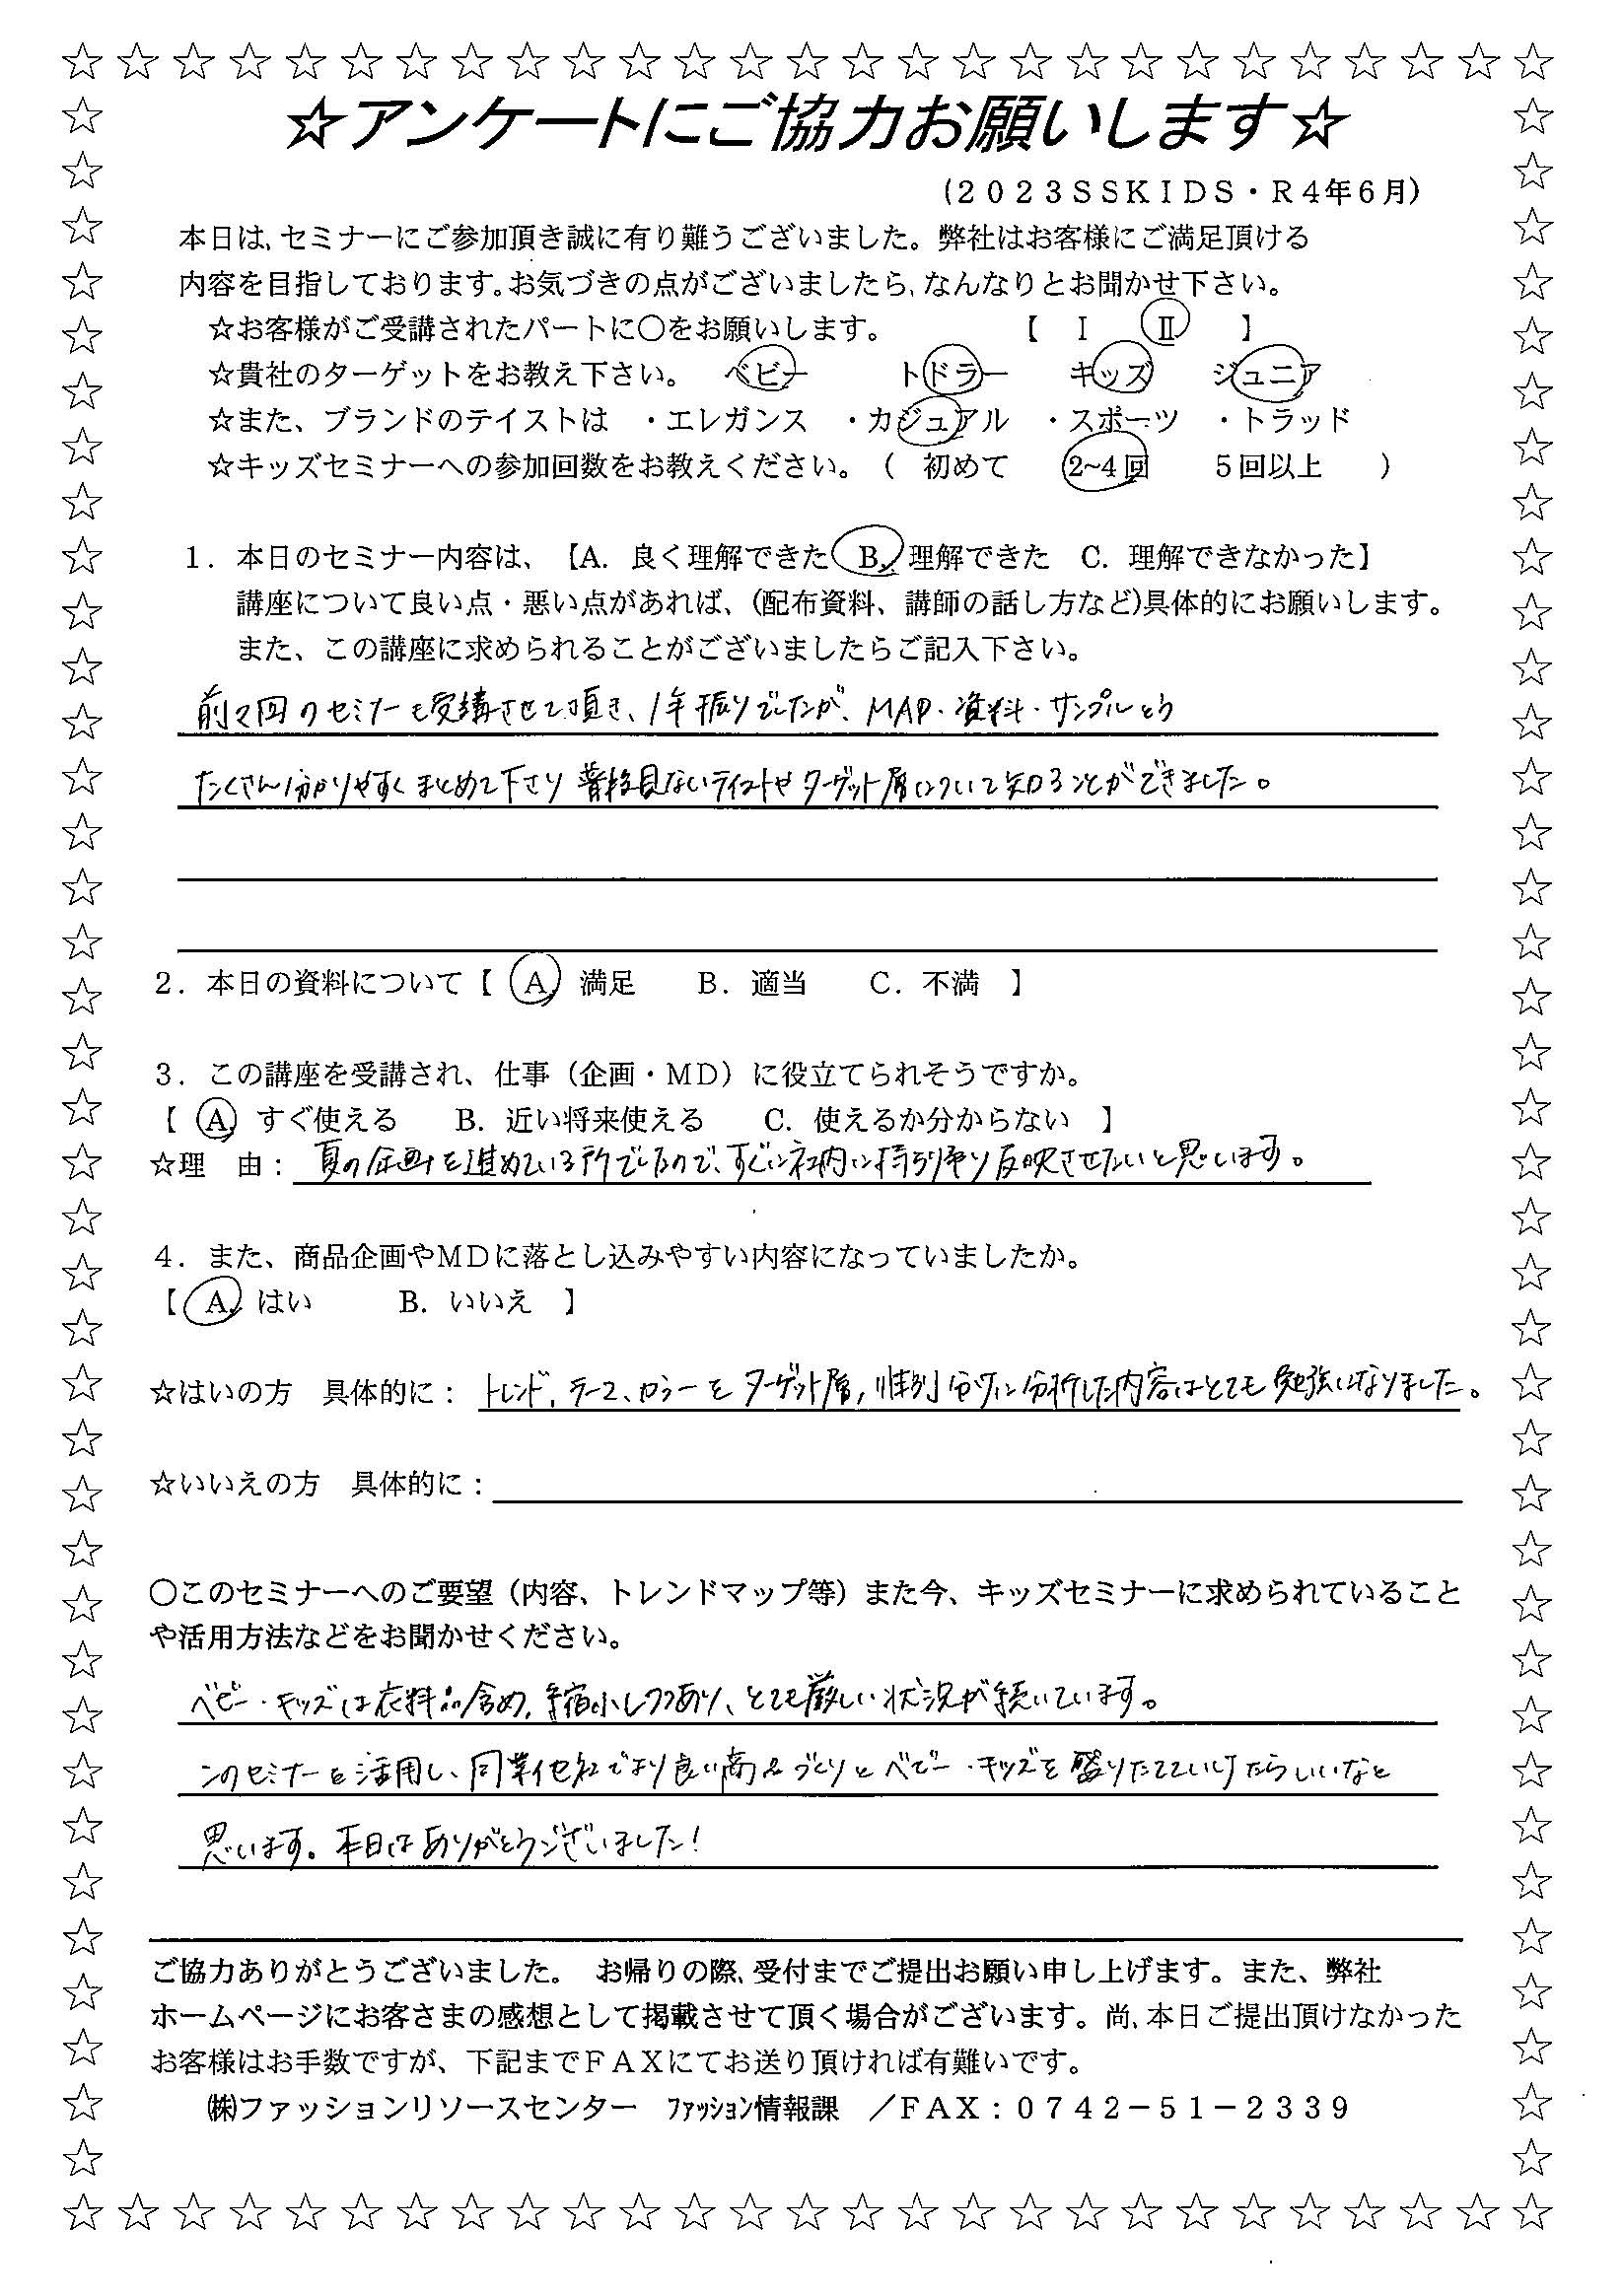 ☆アンケートにご協力お願いします☆
(2023SSKIDS・R4年6月)
本日は、セミナーにご参加頂き誠に有り難うございました。弊社はお客様にご満足頂ける
内容を目指しております。お気づきの点がございましたら、なんなりとお聞かせ下さい。
☆お客様がご受講されたパートに○をお願いします。 【 Ⅰ Ⅱ 】
☆貴社のターゲットをお教え下さい。 ベビー トドラー キッズ ジュニア
☆また、ブランドのテイストは ・エレガンス ・カジュアル ・スポーツ ・トラッド
☆キッズセミナーへの参加回数をお教えください。( 初めて 2~4回 5回以上 )
1.本日のセミナー内容は、【A. 良く理解できた B. 理解できた C. 理解できなかった】
講座について良い点・悪い点があれば、(配布資料、講師の話し方など)具体的にお願いします。
また、この講座に求められることがございましたらご記入下さい。
前々回のセミナーも受講させて頂き、1年振りでしたが、MAP・資料・サンプルとう
たくさん分かりやすくまとめて下さり 普段見ないテイストやターゲット層について知ることができました。
2.本日の資料について【 A. 満足 B. 適当 C. 不満 】
3.この講座を受講され、仕事(企画・MD)に役立てられそうですか。
【 A. すぐ使える B. 近い将来使える C. 使えるか分からない 】
☆理 由: 夏の企画を進めている所でしたので、すぐに社内に持ち帰り反映させたいと思います。
4.また、商品企画やMDに落とし込みやすい内容になっていましたか。
【 A. はい B. いいえ 】
☆はいの方 具体的に: トレンド、テーマ、カラーをターゲット層,性別分けに分析した内容はとても勉強になりました。
☆いいえの方 具体的に:
○このセミナーへのご要望(内容、トレンドマップ等)また今、キッズセミナーに求められていること
や活用方法などをお聞かせください。
ベビー・キッズは衣料品含め,縮小しつつあり、とても厳しい状況が続いています。
このセミナーを活用し、同業他社でより良い商品づくりとベビー・キッズを盛りたてていけたらいいなと
思います。本日はありがとうございました!
ご協力ありがとうございました。 お帰りの際、受付までご提出お願い申し上げます。また、弊社
ホームページにお客さまの感想として掲載させて頂く場合がございます。尚、本日ご提出頂けなかった
お客様はお手数ですが、下記までFAXにてお送り頂ければ有難いです。
㈱ファッションリソースセンター ファッション情報課 /FAX:0742-51-2339